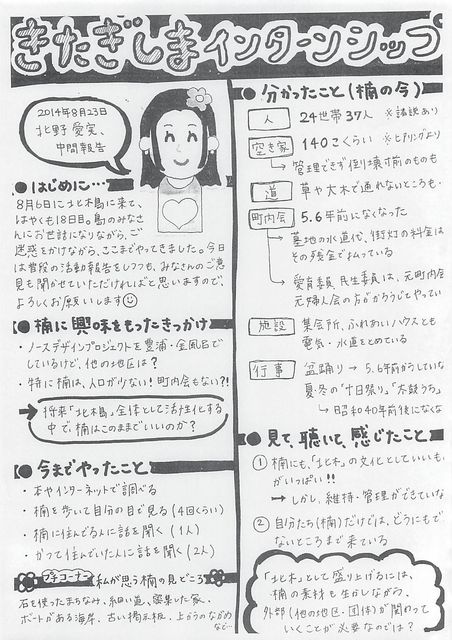 きたぎしまインターンシップ
2014年8月23日
北野 愛実、
中間報告
● はじめに…
8月6日に北木島に来て、
はやくも18日。島のみなさ
んにお世話になりながら、ご
迷惑をかけながら、ここまでやってきました。今日
は普段の活動報告をしつつも、みなさんのご意
見も聞かせていただければと思いますので、
よろしくお願いします
● 楠に興味をもったきっかけ
・ノースデザインプロジェクトを豊浦・金風呂で
しているけど、他の地区は?
・特に楠は、人口が少ない!町内会もない?!
→ 将来「北木島」全体として活性化する
中で、楠はこのままでいいのか?
● 今までやったこと
・本やインターネットで調べる
・楠を歩いて自分の目で見る(4回くらい)
・楠に住んでる人に話を聞く(1人)
・かつて住んでいた人に話を聞く(2人)
プチコーナー 私が思う楠の見どころ
石を使ったまちなみ、細い道、密集した家、
ボートがある海岸、古い掲示板、上からのながめ
など…
● 分かったこと(楠の今)
人 24世帯37人 ※諸説あり
空き家 140こくらい ※ヒアリングより
→ 管理できず倒壊寸前のものも
道 草や大木で通れないところも・
町内会 5.6年前になくなった
→ 墓地の水道代、街灯の料金は
その預金で払っている
→ 愛育委員、民生委員は、元町内会
元婦人会の方ががろうじてやってい
施設 集会所、ふれあいハウスとも
電気・水道をとめている
行事 盆踊り → 5.6年前からしていな
夏冬の「十日祭り」「太鼓うち」
→ 昭和40年前後になくな
● 見て、聴いて、感じたこと
① 楠にも、「北木」の文化としていいも
がいっぱい!!
→ しかし、維持・管理ができていな
② 自分たち(楠)だけでは、どうにもで
ないところまで来ている
「北木」として盛り上げるには、
楠の素材も生かしながら、
外部(他の地区・団体)が関わって
いくことが必要なのでは?